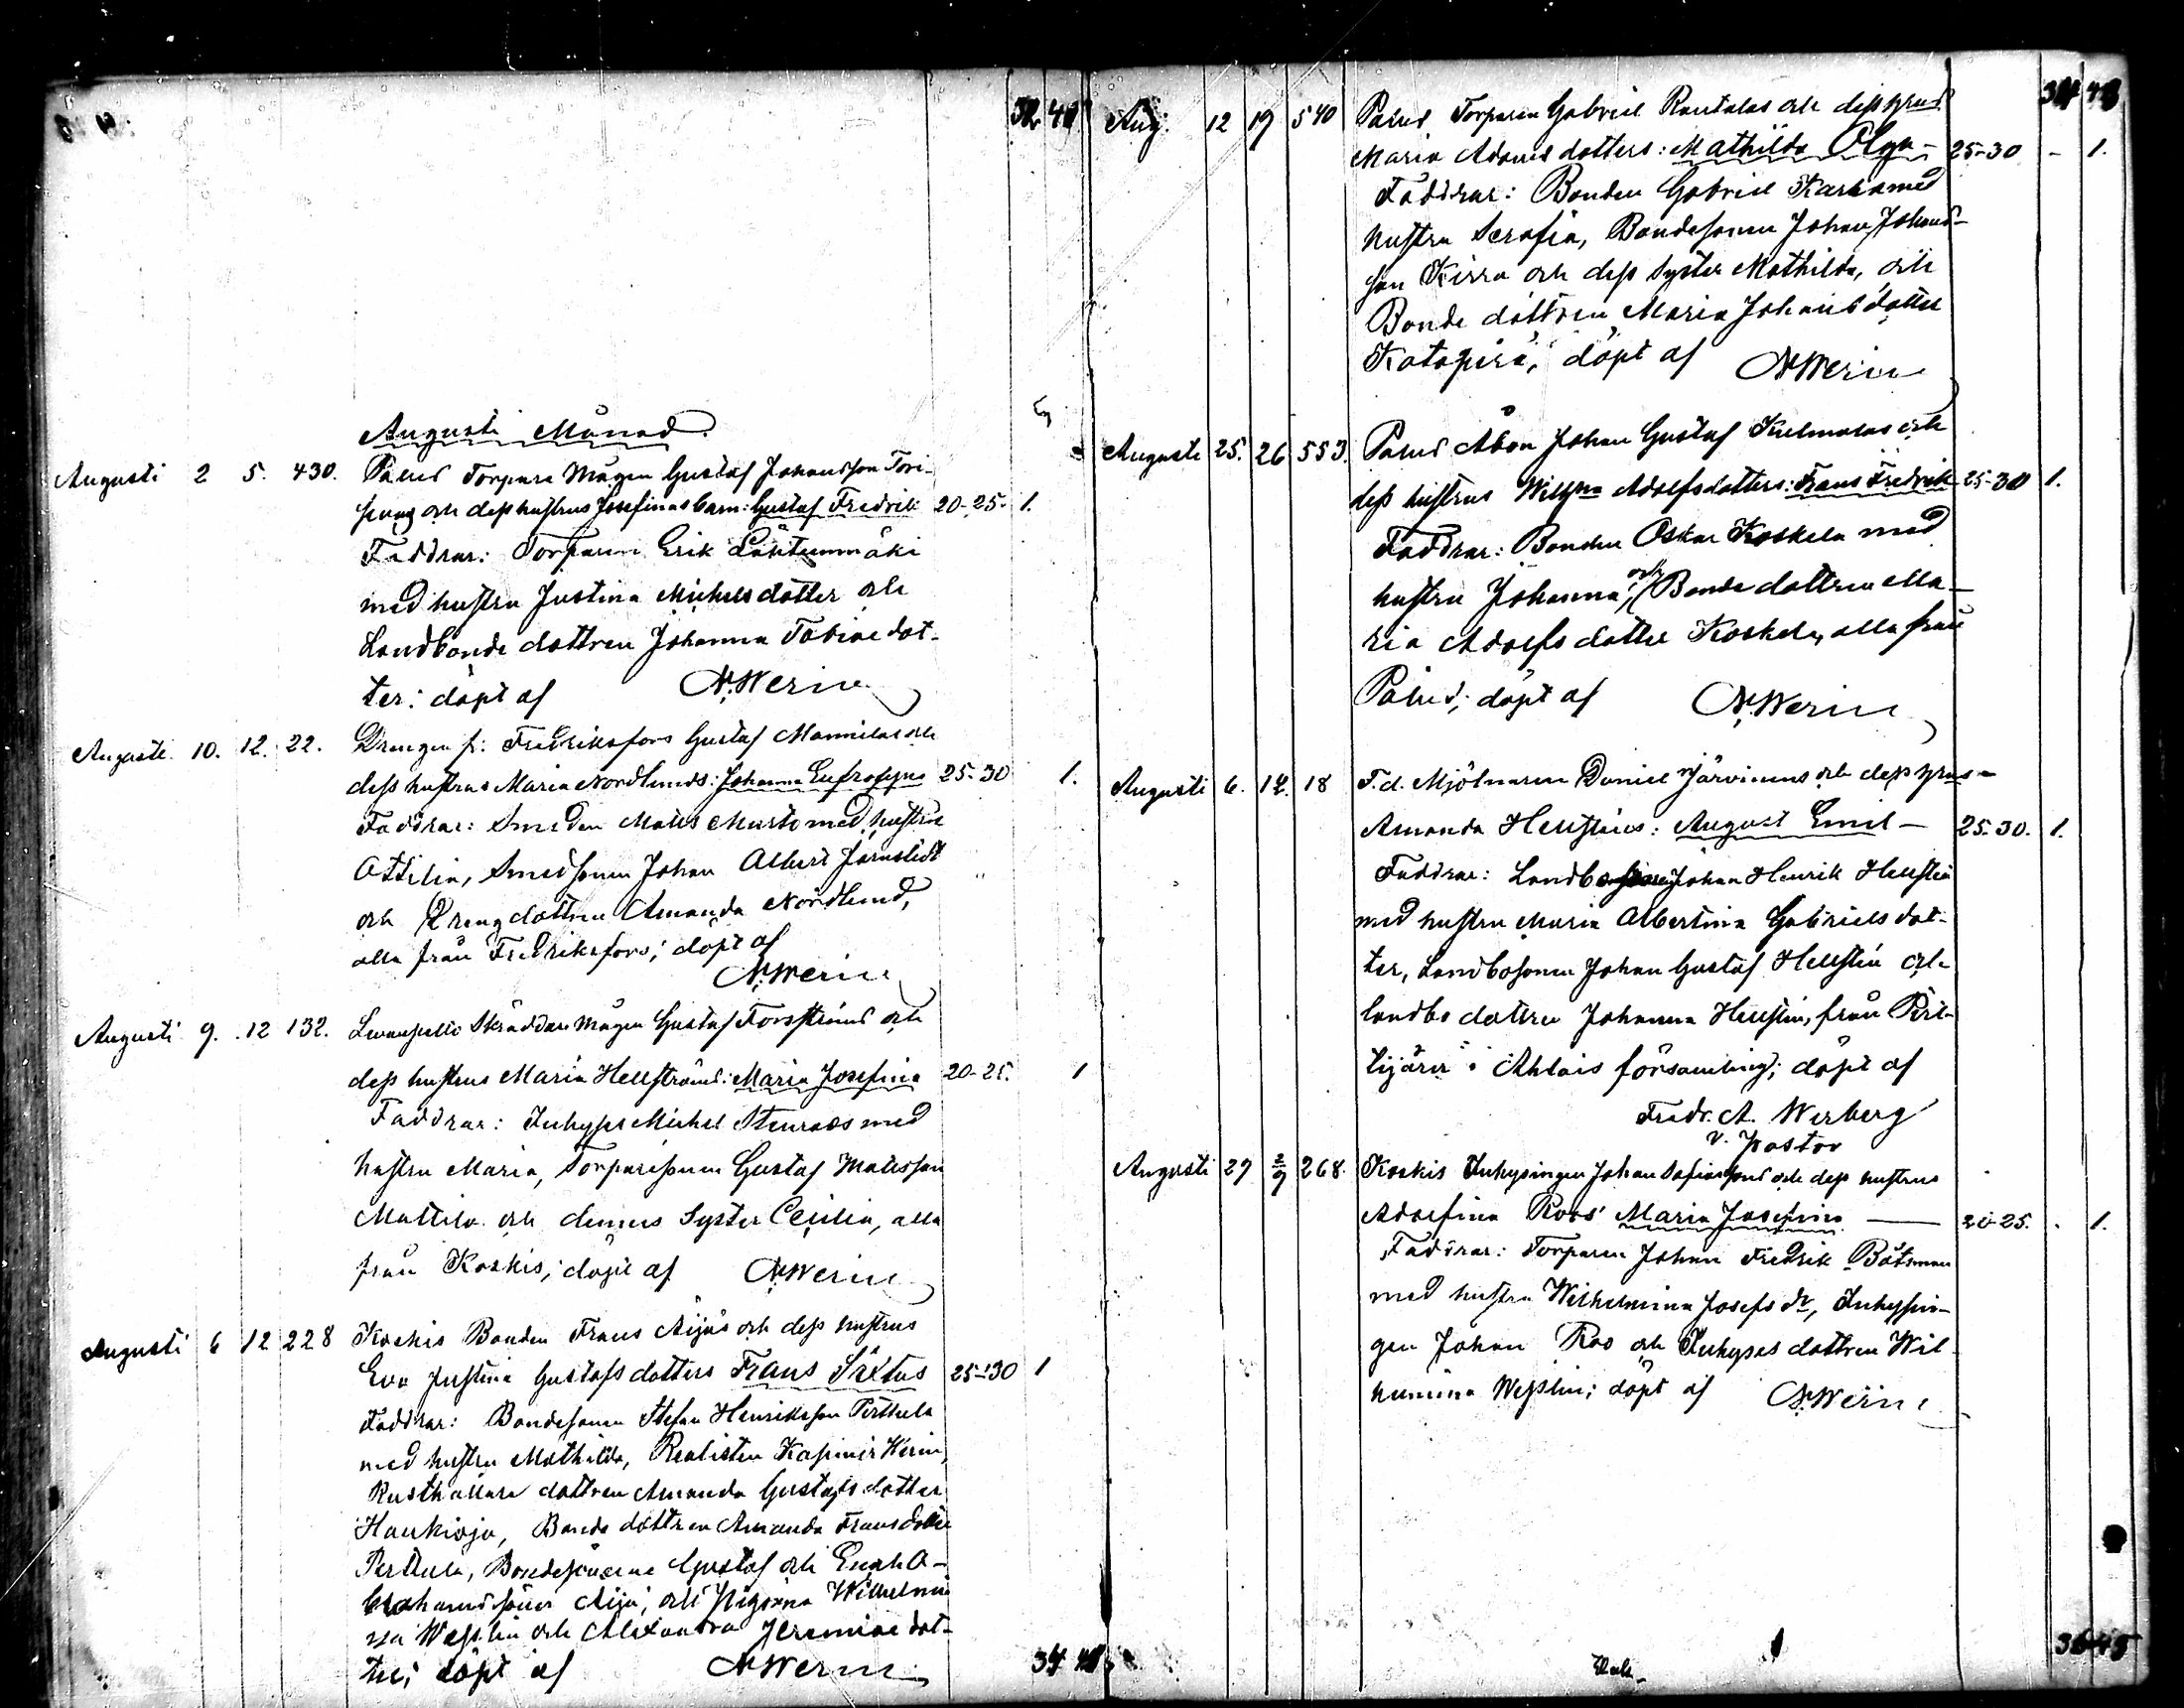 32 41
Augusti Månad.
Augusti 2 5. 430. Pålus Torpare Mågen Gustaf Johansson Tori-
och dess hustrus Josefinas barn: Gustaf Fredrik 20-25. 1.
Faddrar: Torparen Erik Lähteenmäki
med hustru Justina Michelsdotter och
Landbonde dottren Johanna Tobiae dot-
ter; döpt af N. Werin
Augusti 10. 12. 22. Drengen fr: Fredriksfors Gustaf Mannilas och
dess hustrus Maria Nordlunds: Johanna Eufrosyna 25-30 1.
Faddrar: Smeden Matts Murto med hustru
Ottilia, Smedsonen Johan Albert Jernstedt
och Drengdottren Amanda Nordlund,
alla från Fredriksfors; döpt af
N. Werin
Augusti 9. 12 132. Levanpelto Skräddare mågen Gustaf Forsströms och
dess hustrus Maria Hellströms: Maria Josefina 20-25. 1
Faddrar: Inhyses Michel Stenroos med
hustru Maria, Torparesonen Gustaf Mattsson
Mattila och dennes Syster Cecilia, alla
från Koskis; döpt af N. Werin
Augusti 6 12 228 Koskis Bonden Frans Äijäs och dess hustrus
Eva Justina Gustafsdotters Frans Sixtus 25-30 1
Faddrar: Bondesonen Stefan Henriksson Perttula
med hustru Mathilda, Realisten Kasimir Werin,
Rusthållare dottren Amanda Gustafsdotter
Haukioja, Bonde dottren Amanda Fransdotter
Perttula, Bondesönerne Gustaf och Enoch A-
brahamssöner Äijä, och Pigorna Wilhelmi-
na Wesslin och Alexandra Jeremiae dot-
ter; döpt af N. Werin
34
34 43
Aug. 12 19 540 Pålus Torparen Gabriel Rantalas och dess hrus
Maria Adamsdotters: Mathilda Olga - 25-30 - 1.
Faddrar: Bonden Gabriel Karka med
hustru Serafia, Bondesonen Johan Johans-
son Kirra och dess Syster Mathilda, och
Bonde dottren Maria Johansdotter
döpt af N. Werin
Augusti 25. 26 553. Pålus Åbon Johan Gustaf Kulmalas och
dess hustrus Wilhma Adolfsdotters: Frans Fredrik 25-30 1.
Faddrar: Bonden Oskar Koskela med
hustru Johanna, och Bonde dottren Ma-
ria Adolfsdotter Koskela, alla från
Pålus; döpt af N. Werin
Augusti 6. 12. 18 F.d. Mjölnaren Daniel Järvinens och dess hrus
Amanda Hellstens: August Emil - 25-30. 1.
Faddrar: Johan Henrik Hellsten
med hustru Maria Albertina Gabriels dot-
ter, Landbosonen Johan Gustaf Hellsten och
landbo dottren Johanna Hellsten, från Pert-
tijärvi i Ahlais församling; döpt af
Fredr. A. Werberg
v. Pastor
Augusti 27 2/9 268. Koskis Inhysingen Johan och dess hustrus
Adolfina Roos' Maria Josefina 20-25. - 1.
Faddrar: Torparen Johan Fredrik Båtsman
med hustru Wilhelmina Josefs dr, Inhysin-
gen Johan Roo och Inhyses dottren Wil-
helmina Wesslin; döpt af N. Werin
36 45